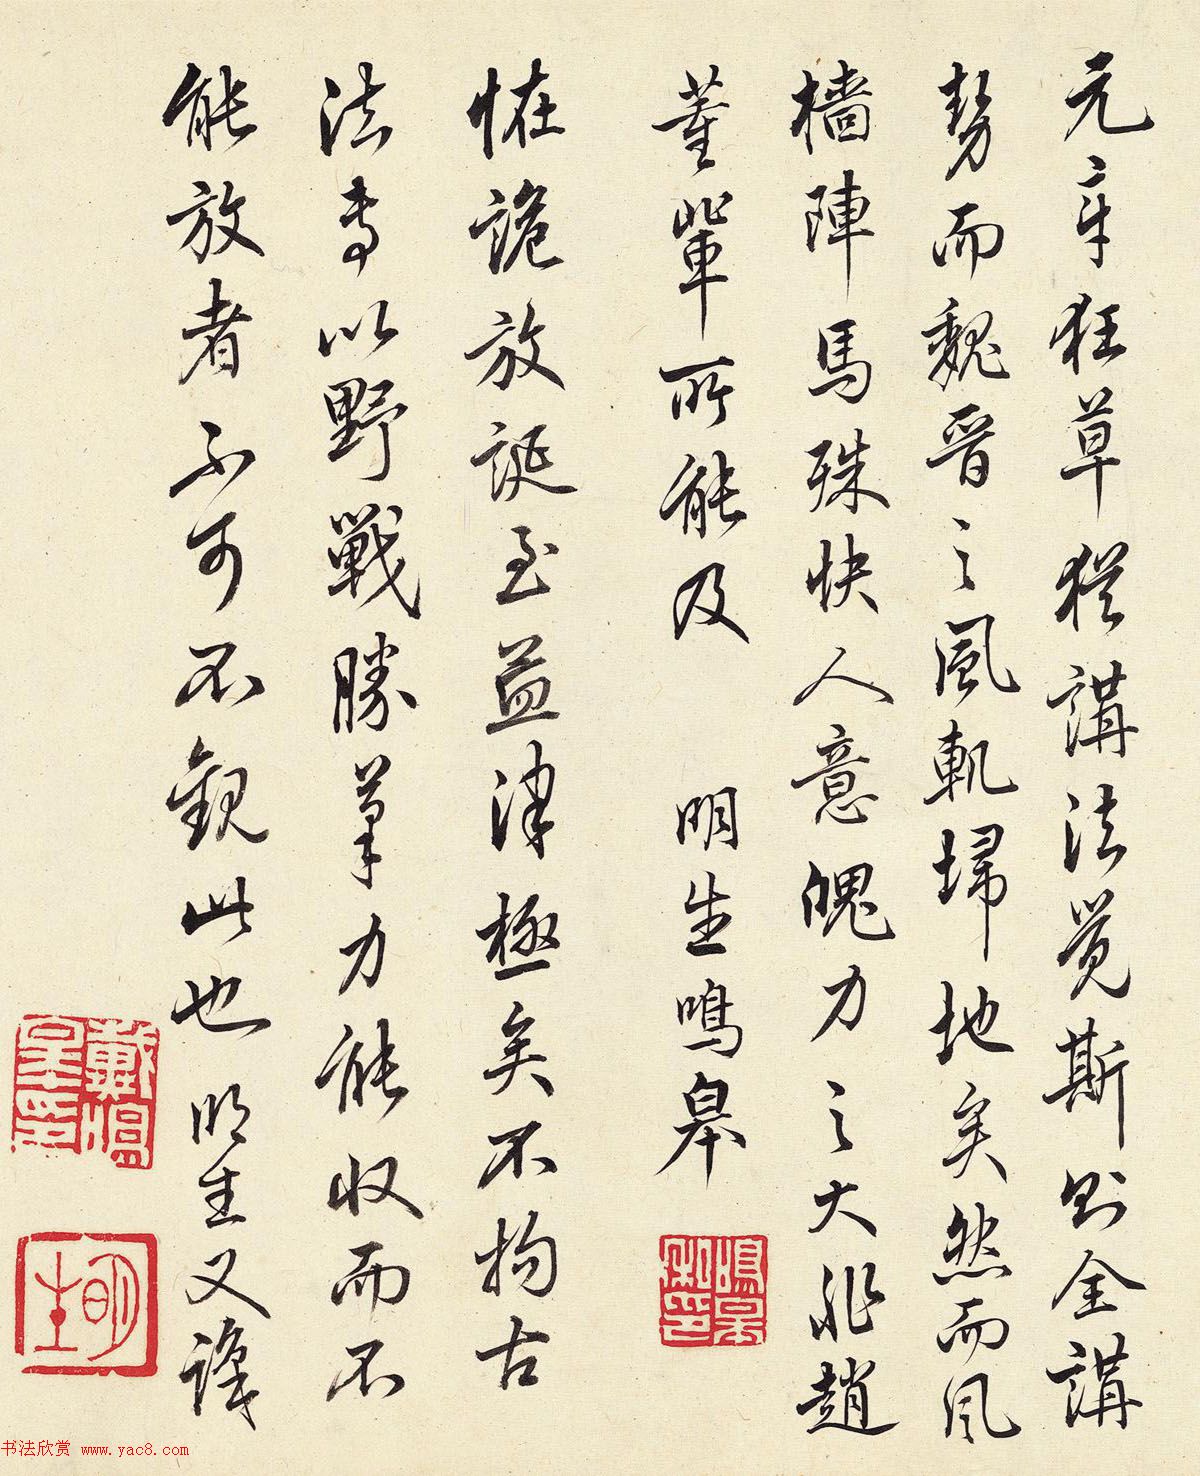 元章狂草猶講法覺斯則全講
勢而魏晉之風軌埽地矣然而風
檣陣馬殊快人意魄力之大非趙
董輩所能及 明生鳴皋
恠詭放誕至孟津極矣不拘古
法專以野戰勝筆力能收而不
能放者不可不觀此也 明生又識
明生
书法欣赏 www.yac8.com